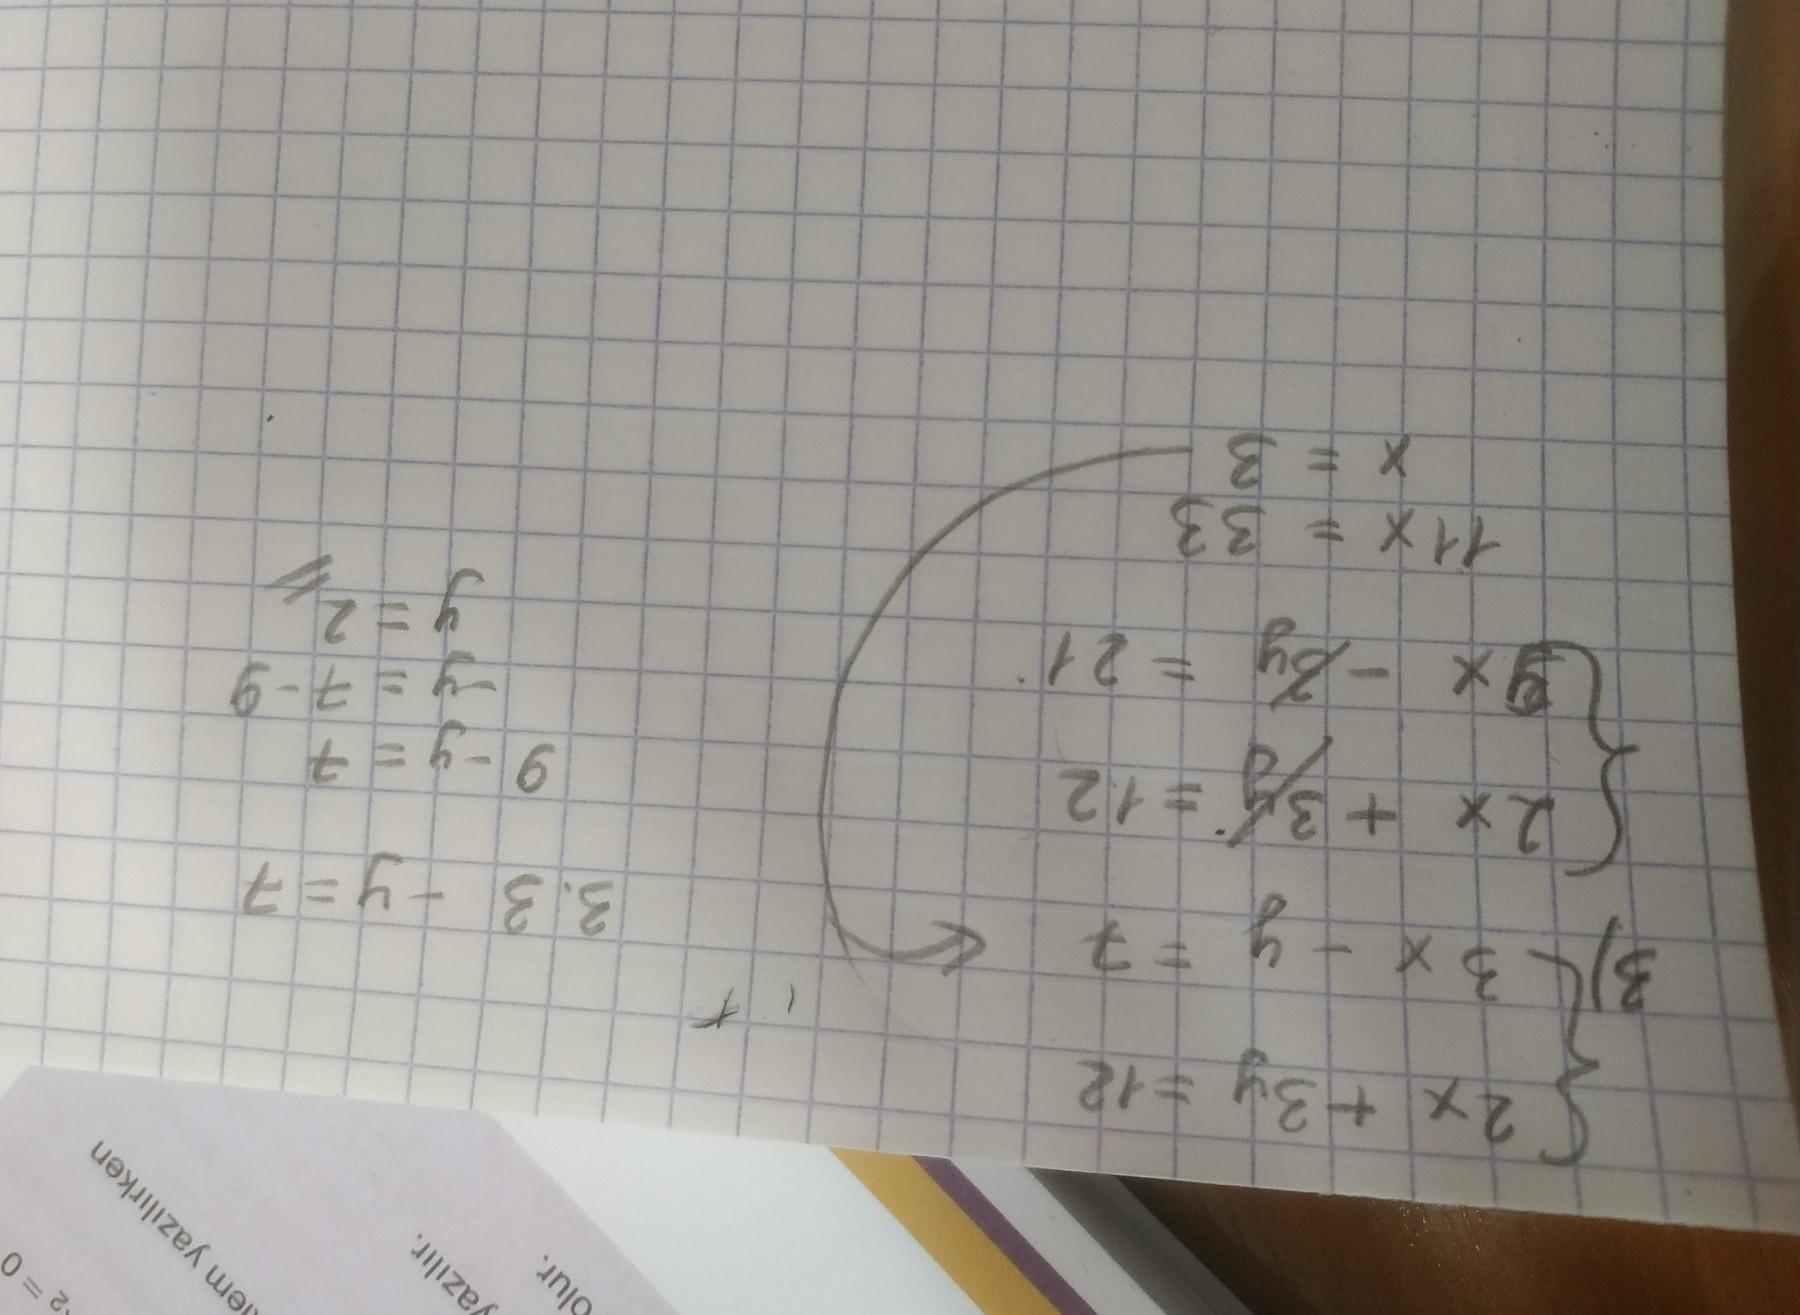 2x + 3y = 12
3) 3x - y = 7
2x + 3y = 12
9x - 3y = 21
11x = 33
x = 3
3.3 - y = 7
9 - y = 7
-y = 7-9
y = 2
olur.
yazılır.
yazılırken
2 = 0